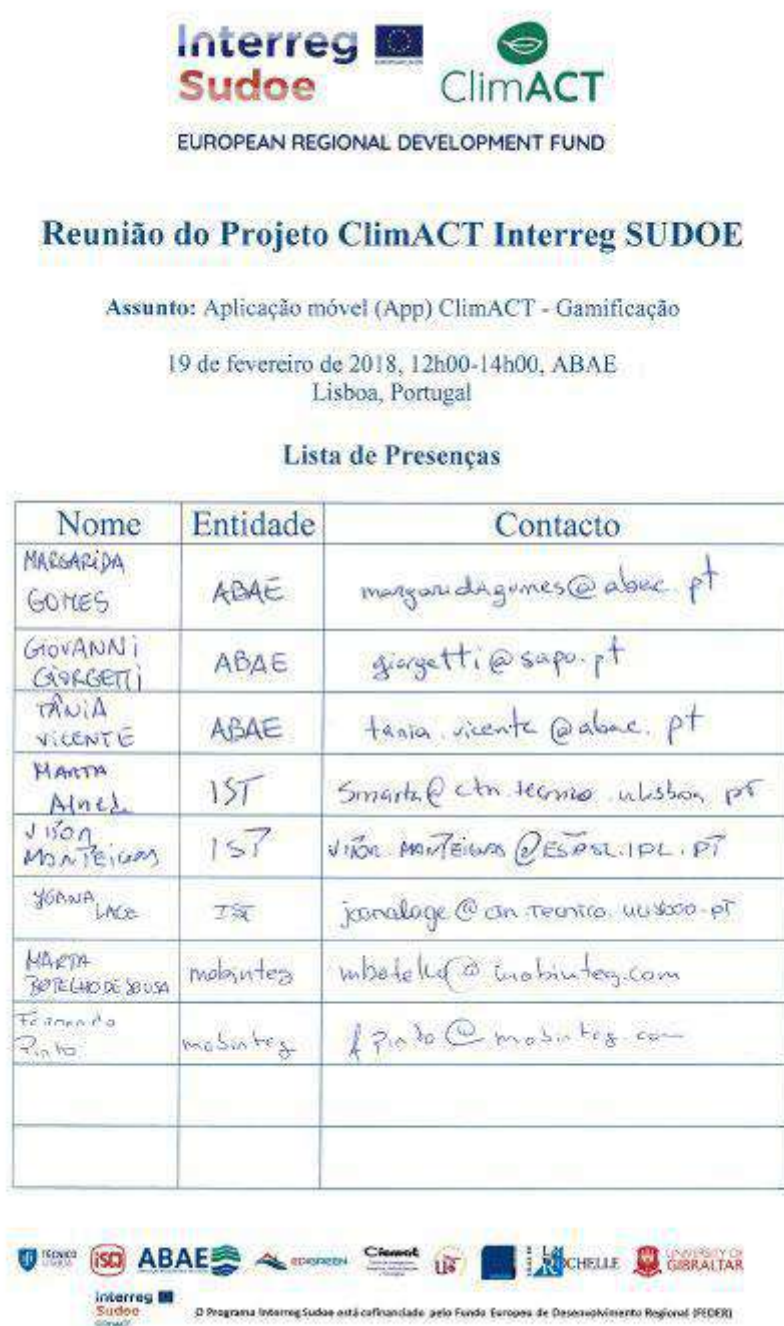 Interreg
Sudoe
ClimACT
EUROPEAN REGIONAL DEVELOPMENT FUND
Reunião do Projeto ClimACT Interreg SUDOE
Assunto: Aplicação móvel (App) ClimACT - Gamificação
19 de fevereiro de 2018, 12h00-14h00, ABAE
Lisboa, Portugal
Lista de Presenças
Nome Entidade Contacto
MARGARIDA
GOMES ABAE margaridagomes@abae.pt
GIOVANNI
GIORGETTI ABAE giorgetti@sapo.pt
TÂNIA
VICENTE ABAE tania.vicente@abae.pt
MARTA
IST smarta@ctn.tecnico.ulisboa.pt
VITOR
MONTEIGAS IST VITOR.MANTEIGAS@ESTESL.IPL.PT
JOANA
LAGE IST joanalage@ctn.tecnico.ulisboa.pt
MARTA
BOTELHO DE SOUSA mobinteg mbotelho@mobinteg.com
Fernando
Pinto mobinteg fpinto@mobinteg.com
TÉCNICO
LISBOA
ABAE
EDIGREEN
Ciemat
LA ROCHELLE
UNIVERSITY OF
GIBRALTAR
Interreg
Sudoe
ClimACT
O Programa Interreg Sudoe está cofinanciado pelo Fundo Europeu de Desenvolvimento Regional (FEDER)